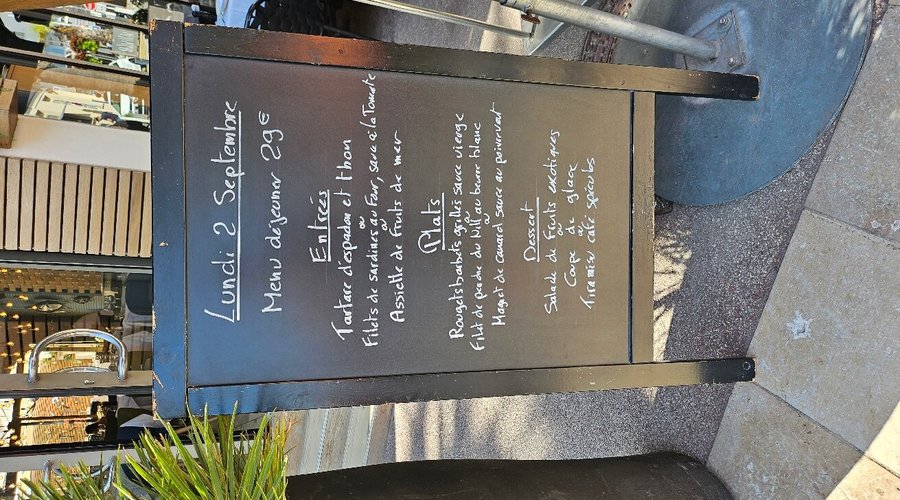 Lundi 2 Septembre
Menu déjeuner 29€
Entrées
Tartare d'espadon et thon
ou
Filets de sardines au Four, sauce à la Tomate
ou
Assiette de Fruits de mer
Plats
Rougets barbets grillés sauce vierge
ou
Filet de perche du Nill au beurre blanc
ou
Magret de canard sauce au poivre vert
Dessert
Salade de Fruits exotiques
ou
Coupe de glace
ou
Tiramisu café spéculos